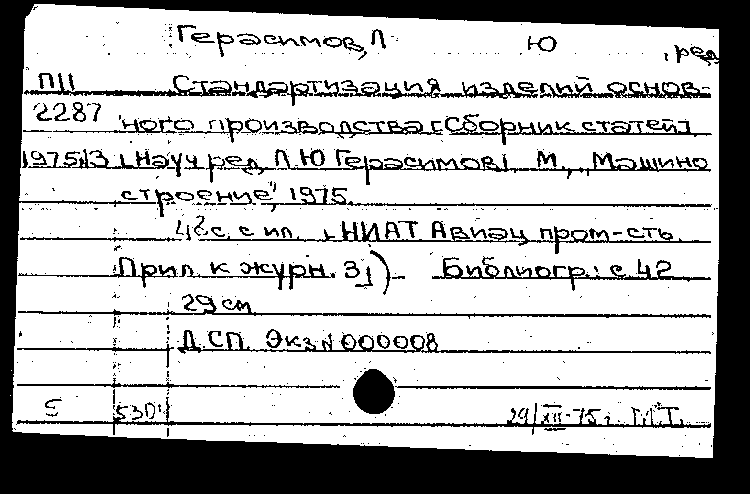 Герасимов, Л Ю , ред
ПII Стандартизация изделий основ-
2287 ного производства [Сборник статей]
1975 13 [Науч ред Л.Ю Герасимов] М., „Машино
строение", 1975.
с. с ил. [НИАТ Авиац пром-сть.
Прил к журн. 3]) Библиогр.: с 42
29 см
ДСП. Экз № 000008
5 530
29/XII-75 г. М.Т.